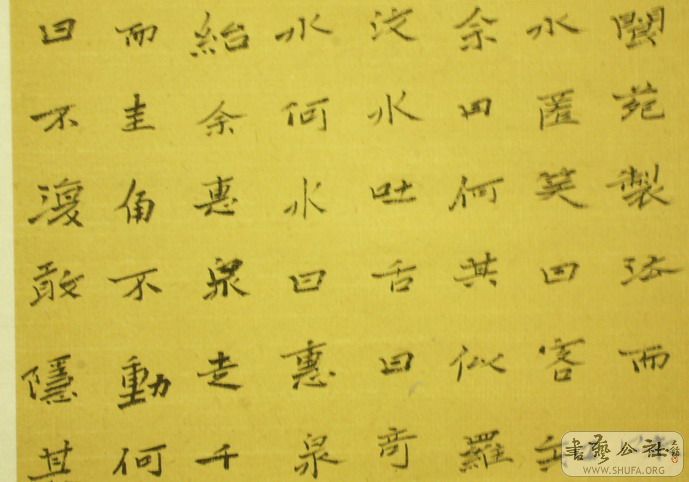 閬苑製法而
水匿笑曰客
余曰何其似羅
汶水吐舌曰奇
水何水曰惠泉
紿余惠泉走千
而圭角不動何
曰不復敢隱其
書藝公社
WWW.SHUFA.ORG